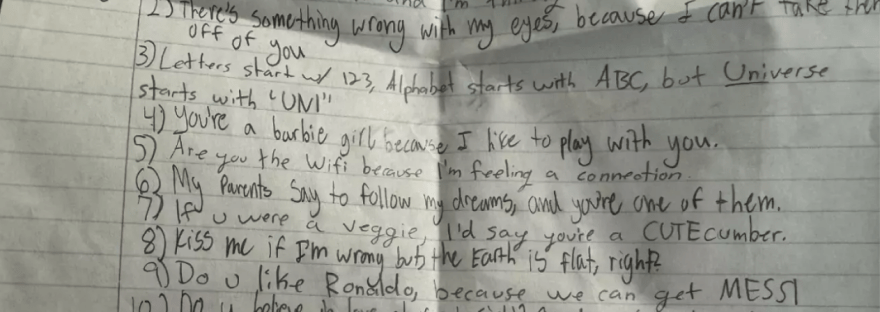 2) There's something wrong with my eyes, because I can't take them
off of you
3) Letters start w/ 123, Alphabet starts with ABC, but Universe
starts with "UNI"
4) You're a barbie girl because I like to play with you.
5) Are you the Wifi because I'm feeling a connection.
6) My Parents Say to follow my dreams, and you're one of them.
7) If u were a veggie, I'd say you're a CUTEcumber.
8) Kiss me if I'm wrong but the Earth is flat, right?
9) Do u like Ronaldo, because we can get MESSI
10) Do u believe in love